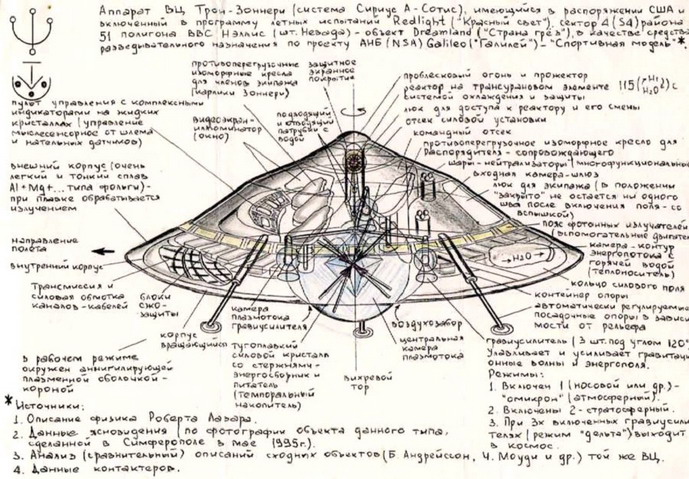 Аппарат ВЦ Трон-Зоннери (система Сириус А-Сотис), имеющийся в распоряжении США и
включенный в программу летных испытаний Redlight ("Красный свет"), сектор 4 (S4) района
51 полигона ВВС Нэллис (шт. Невада) - объект Dreamland ("Страна грёз"), в качестве средства
разведывательного назначения по проекту АНБ (NSA) Galileo ("Галилей") - "Спортивная модель" *
противоперегрузочные
изоморфные кресла
для членов экипажа
(карлики Зоннери)
защитное
экранное
покрытие
проблесковый огонь и прожектор
реактор на трансурановом элементе 115
с системой охлаждения и защиты
люк для доступа к реактору и его смены
отсек силовой установки
командный отсек
противоперегрузочное изоморфное кресло для
распорядителя - сопровождающего
шары-нейтрализаторы (многофункциональные)
входная камера-шлюз
люк для экипажа (в положении
"закрыто" не остается ни одного
шва после включения поля - со
вспышкой)
пояс фотонных излучателей
(вспомогательные двигатели)
камера-контур
энергопотока с
горячей водой
(теплоноситель)
H₂O
кольцо силового поля
контейнер опоры
автоматически регулируемые
посадочные опоры в зависи-
мости от рельефа
пульт управления с комплексными
индикаторами на жидких
кристаллах (управление
мыслесенсорное от шлема
и нательных датчиков)
видеоэкран-
иллюминатор
(окно)
подводящий
и отводящий
патрубки с
водой
внешний корпус (очень
легкий и тонкий сплав
Al+Mg+... типа фольги) -
при плавке обрабатывается
излучением
направление
полета
внутренний корпус
Трансмиссия и
силовая обмотка
каналов-кабелей
блоки
СЖО-
защиты
корпус
вращающийся
камера
плазмотока
гравиусилителя
тугоплавкий
силовой кристалл
со стержнями-
энергосборник и
питатель
(темпоральный
накопитель)
вихревой
тор
воздухозабор
центральная
камера
плазмотока
гравиусилитель (3 шт. под углом 120°)
Улавливает и усиливает гравитаци-
онные волны и энергополя.
Режимы:
1. Включен 1 (носовой или др.) -
"омикрон" (атмосферный).
2. Включены 2 - стратосферный.
3. При 3х включенных гравиусили-
телях (режим "дельта") выходит
в космос.
в рабочем режиме
окружен аннигилирующей
плазменной оболочкой-
короной
* Источники:
1. Описание физика Роберта Лазара.
2. Данные ясновидения по фотографии объекта данного типа,
сделанной в Симферополе в мае 1995г.).
3. Анализ (сравнительный) описаний сходных объектов (Б. Андрейссон, Ч. Моуди и др.) той же ВЦ.
4. Данные контактеров.